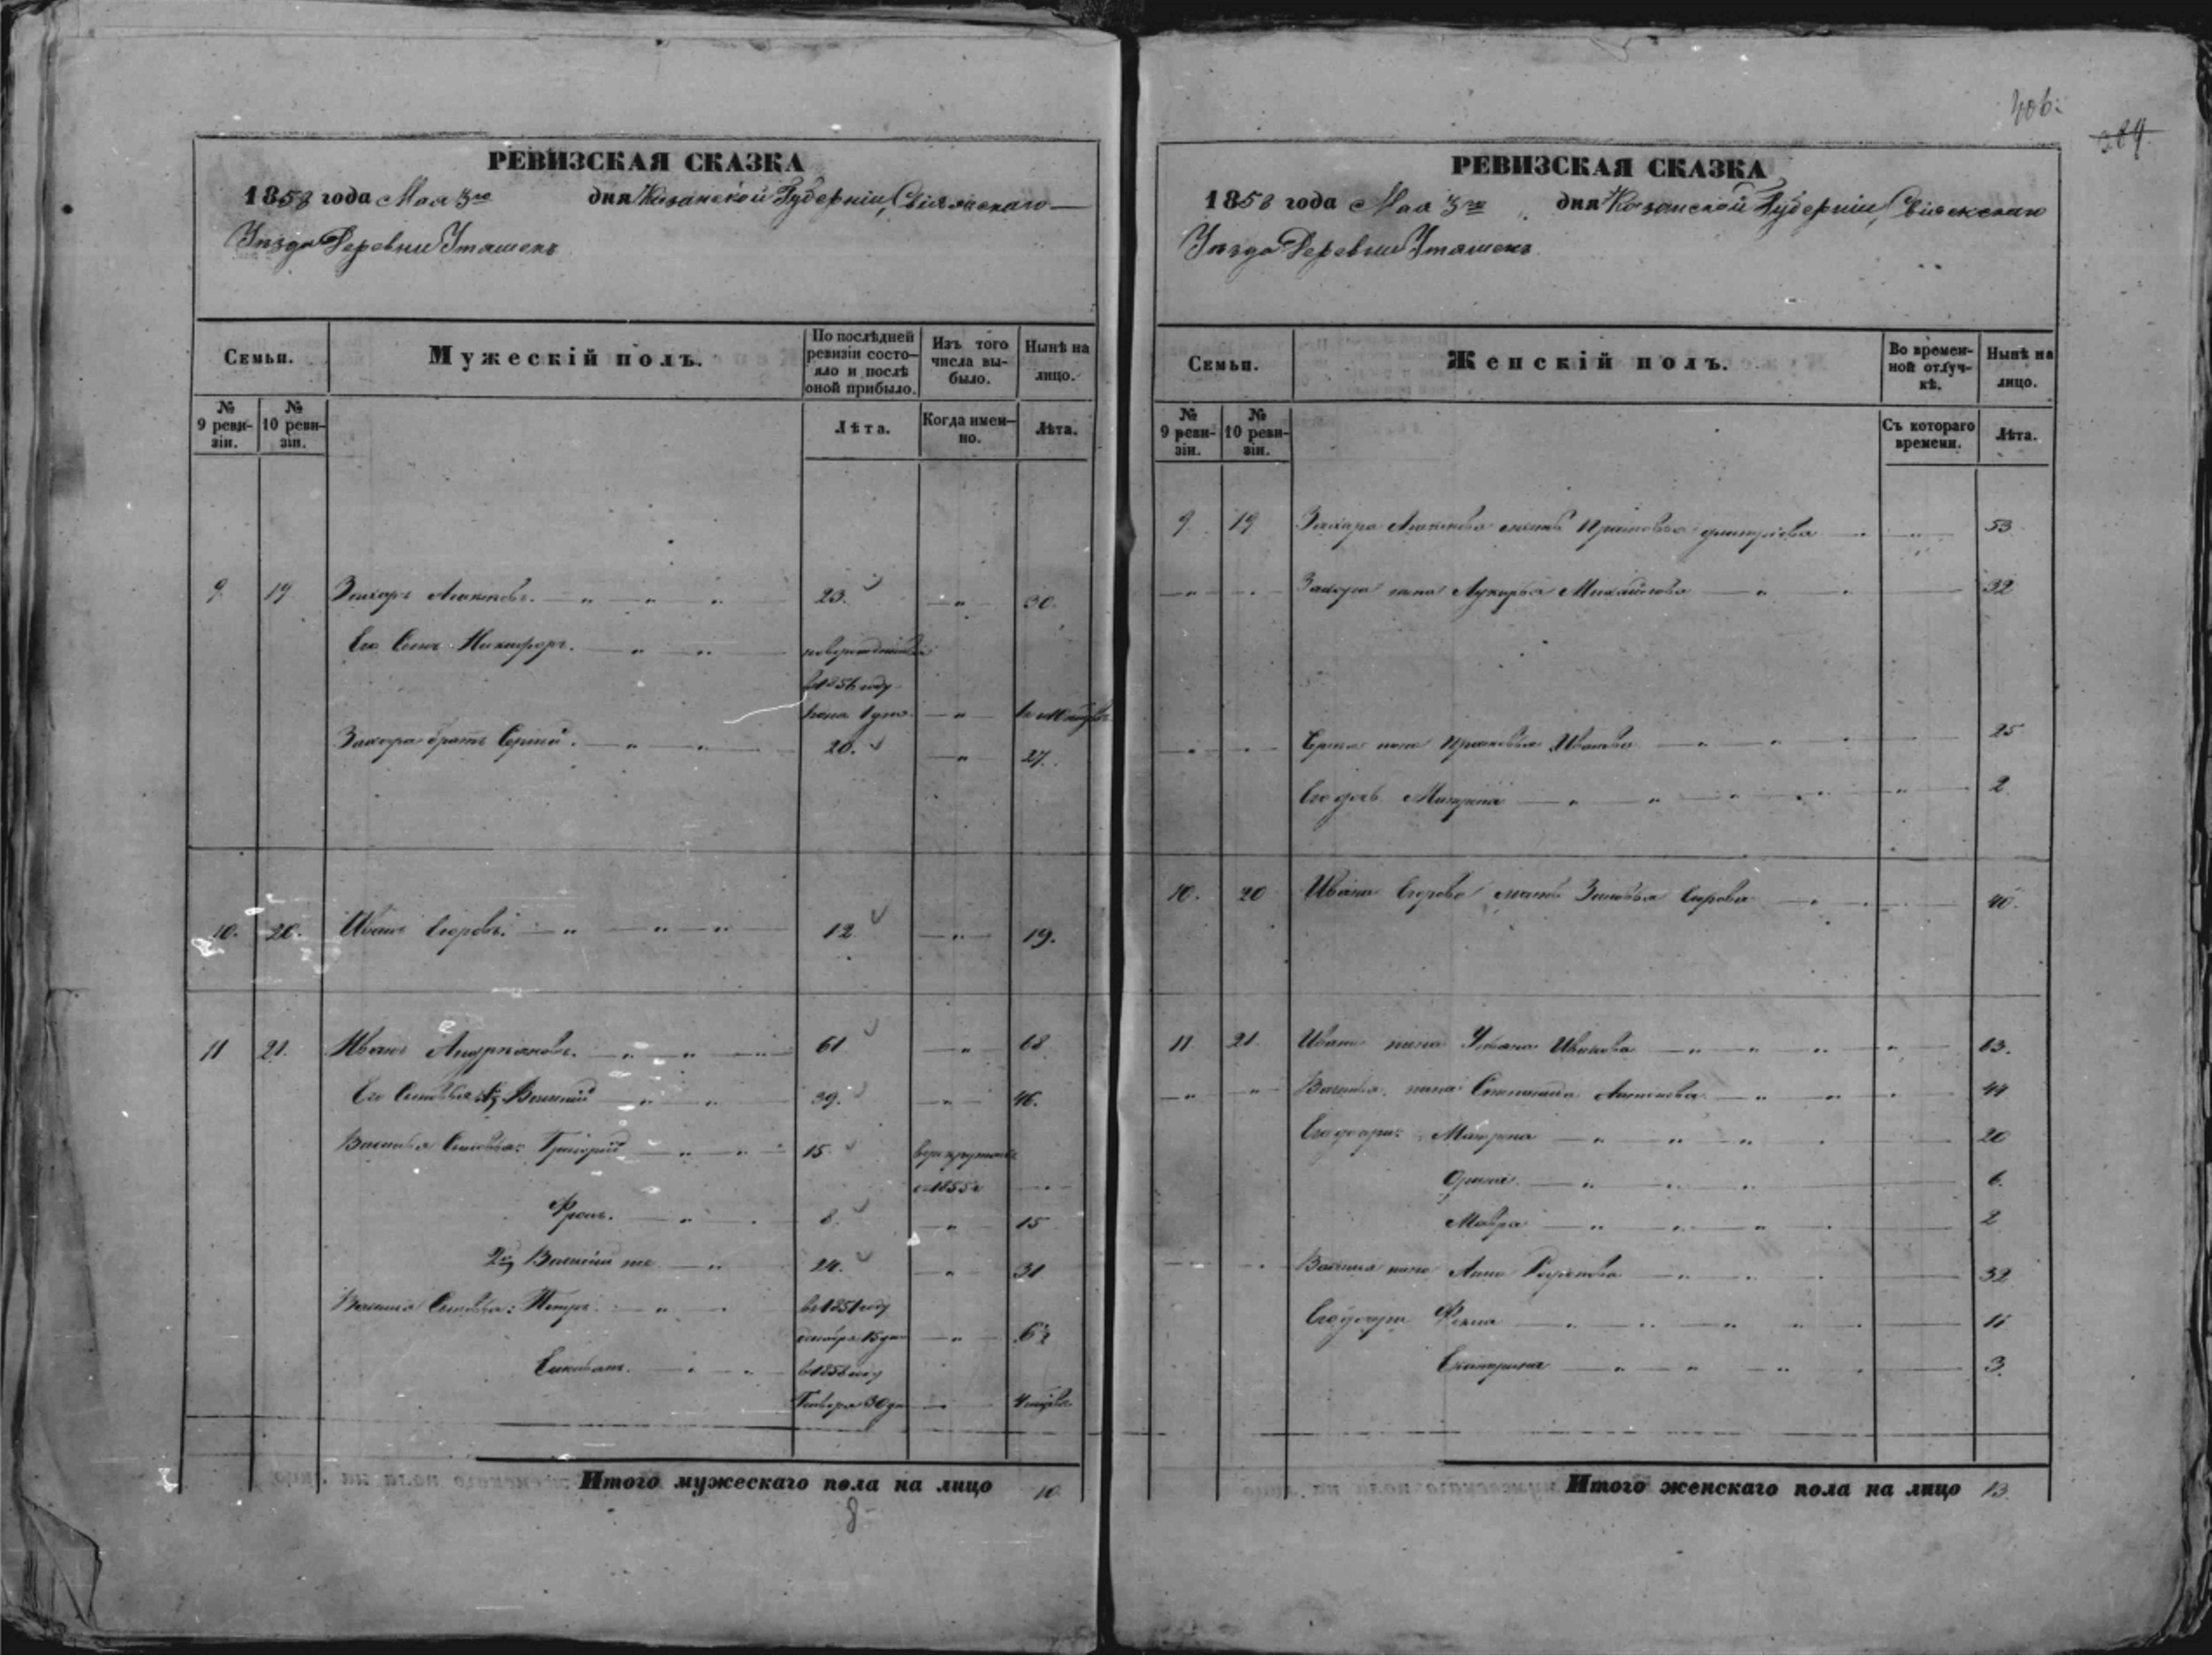 406.
289
РЕВИЗСКАЯ СКАЗКА
1858 года Мая 3го дня Казанской Губерніи, Свіяжскаго
Уѣзда Деревни Уташекъ
Семьи. Мужескій полъ. По послѣдней ревизіи состояло и послѣ оной прибыло. Изъ того числа выбыло. Нынѣ на лицо.
№ 9 ревизіи. № 10 ревизіи. Лѣта. Когда именно. Лѣта.
9. 19 Захаръ 23. — " — 30.
Его Сынъ Никифоръ. — " — " — новорожденный
в 1856 году
1 дня — " —
Захара братъ Сергѣй. — " — " — 20. — " — 27.
10. 20. Иванъ Егоровъ. — " — " — " — 12 — " — 19.
11 21. Иванъ Андреяновъ. — " — " — " — 61 — " — 68
Его Сыновья 1й Василій — " — " — 39. — " — 46.
Василья Сыновья: Григорій — " — " — 15 в рекруты
в 1855 г — " —
Фролъ. — " — 8. — " — 15
2й Василій же — " — 24. — " — 31
Василья Сыновья: Петръ. — " — в 1851 году
октября 15 дня — " — 6½
в 1858 году
Генваря 30 дня — 4 мѣсяц
Итого мужескаго пола на лицо 10
8
РЕВИЗСКАЯ СКАЗКА
1858 года Мая 3го дня Казанской Губерніи, Свіяжскаго
Уѣзда Деревни Уташекъ
Семьи. Женскій полъ. Во временной отлучкѣ. Нынѣ на лицо.
№ 9 ревизіи. № 10 ревизіи. Съ котораго времени. Лѣта.
9. 19 Захара мать Прасковья Дмитріева — " — 53
— " — Захара жена Лукерья Михайлова — " — 32
— " — Сергѣя жена Прасковья Иванова — " — 25
Его дочь Матрена — " — " — 2
10. 20 Ивана Егорова мать Зиновья Егорова — " — 40.
11 21. Ивана жена Ульяна Иванова — " — " — 63.
— " — Василья жена Степанида Антонова — " — " — 44
Его дочери: Матрена — " — " — 20
Орина — " — " — 6.
Мавра — " — " — 2
— " — Василья жена Анна Родіонова — " — 32
Его дочери Фекла — " — " — 11
Екатерина — " — " — 3.
Итого женскаго пола на лицо 13.